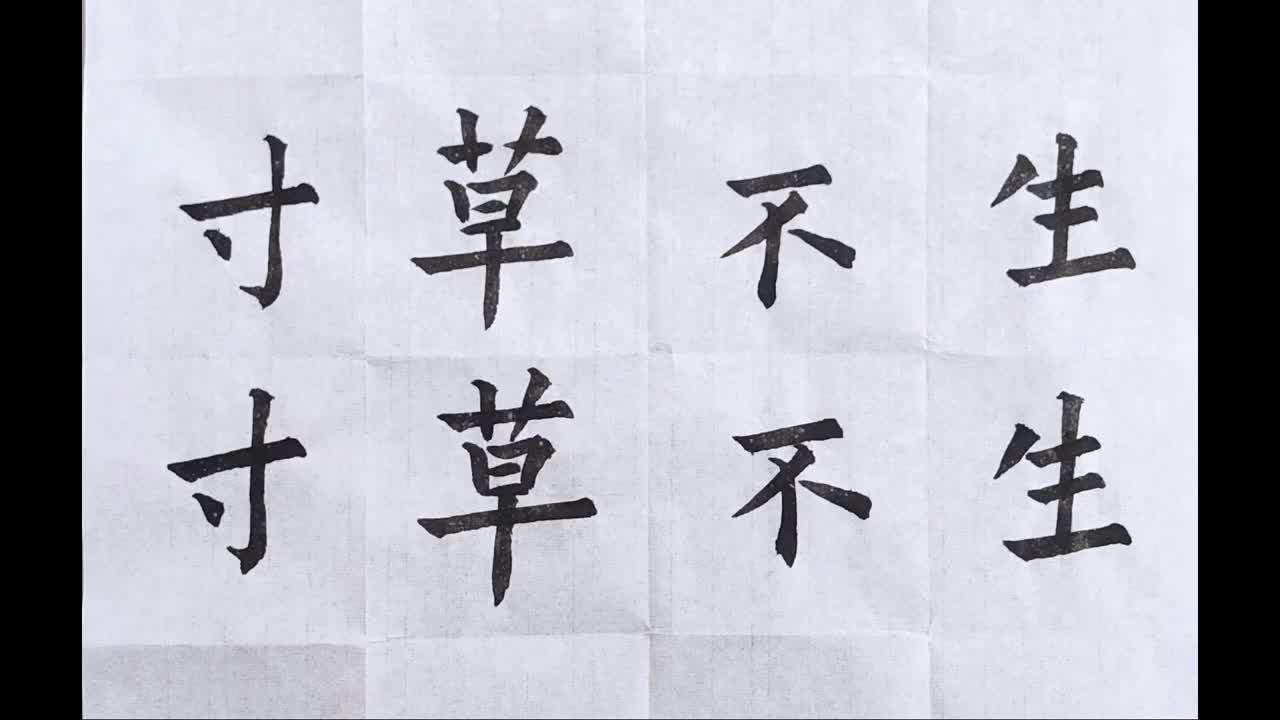 寸草不生
寸草不生